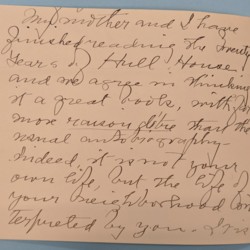 My mother and I have
finished reading the twenty
years of Hull House
and we agree in thinking
it a great book, with far
more raison d'être than the
usual autobiography.
Indeed, it is not your
own life, but the life of
your neighborhood in-
terpreted by you.